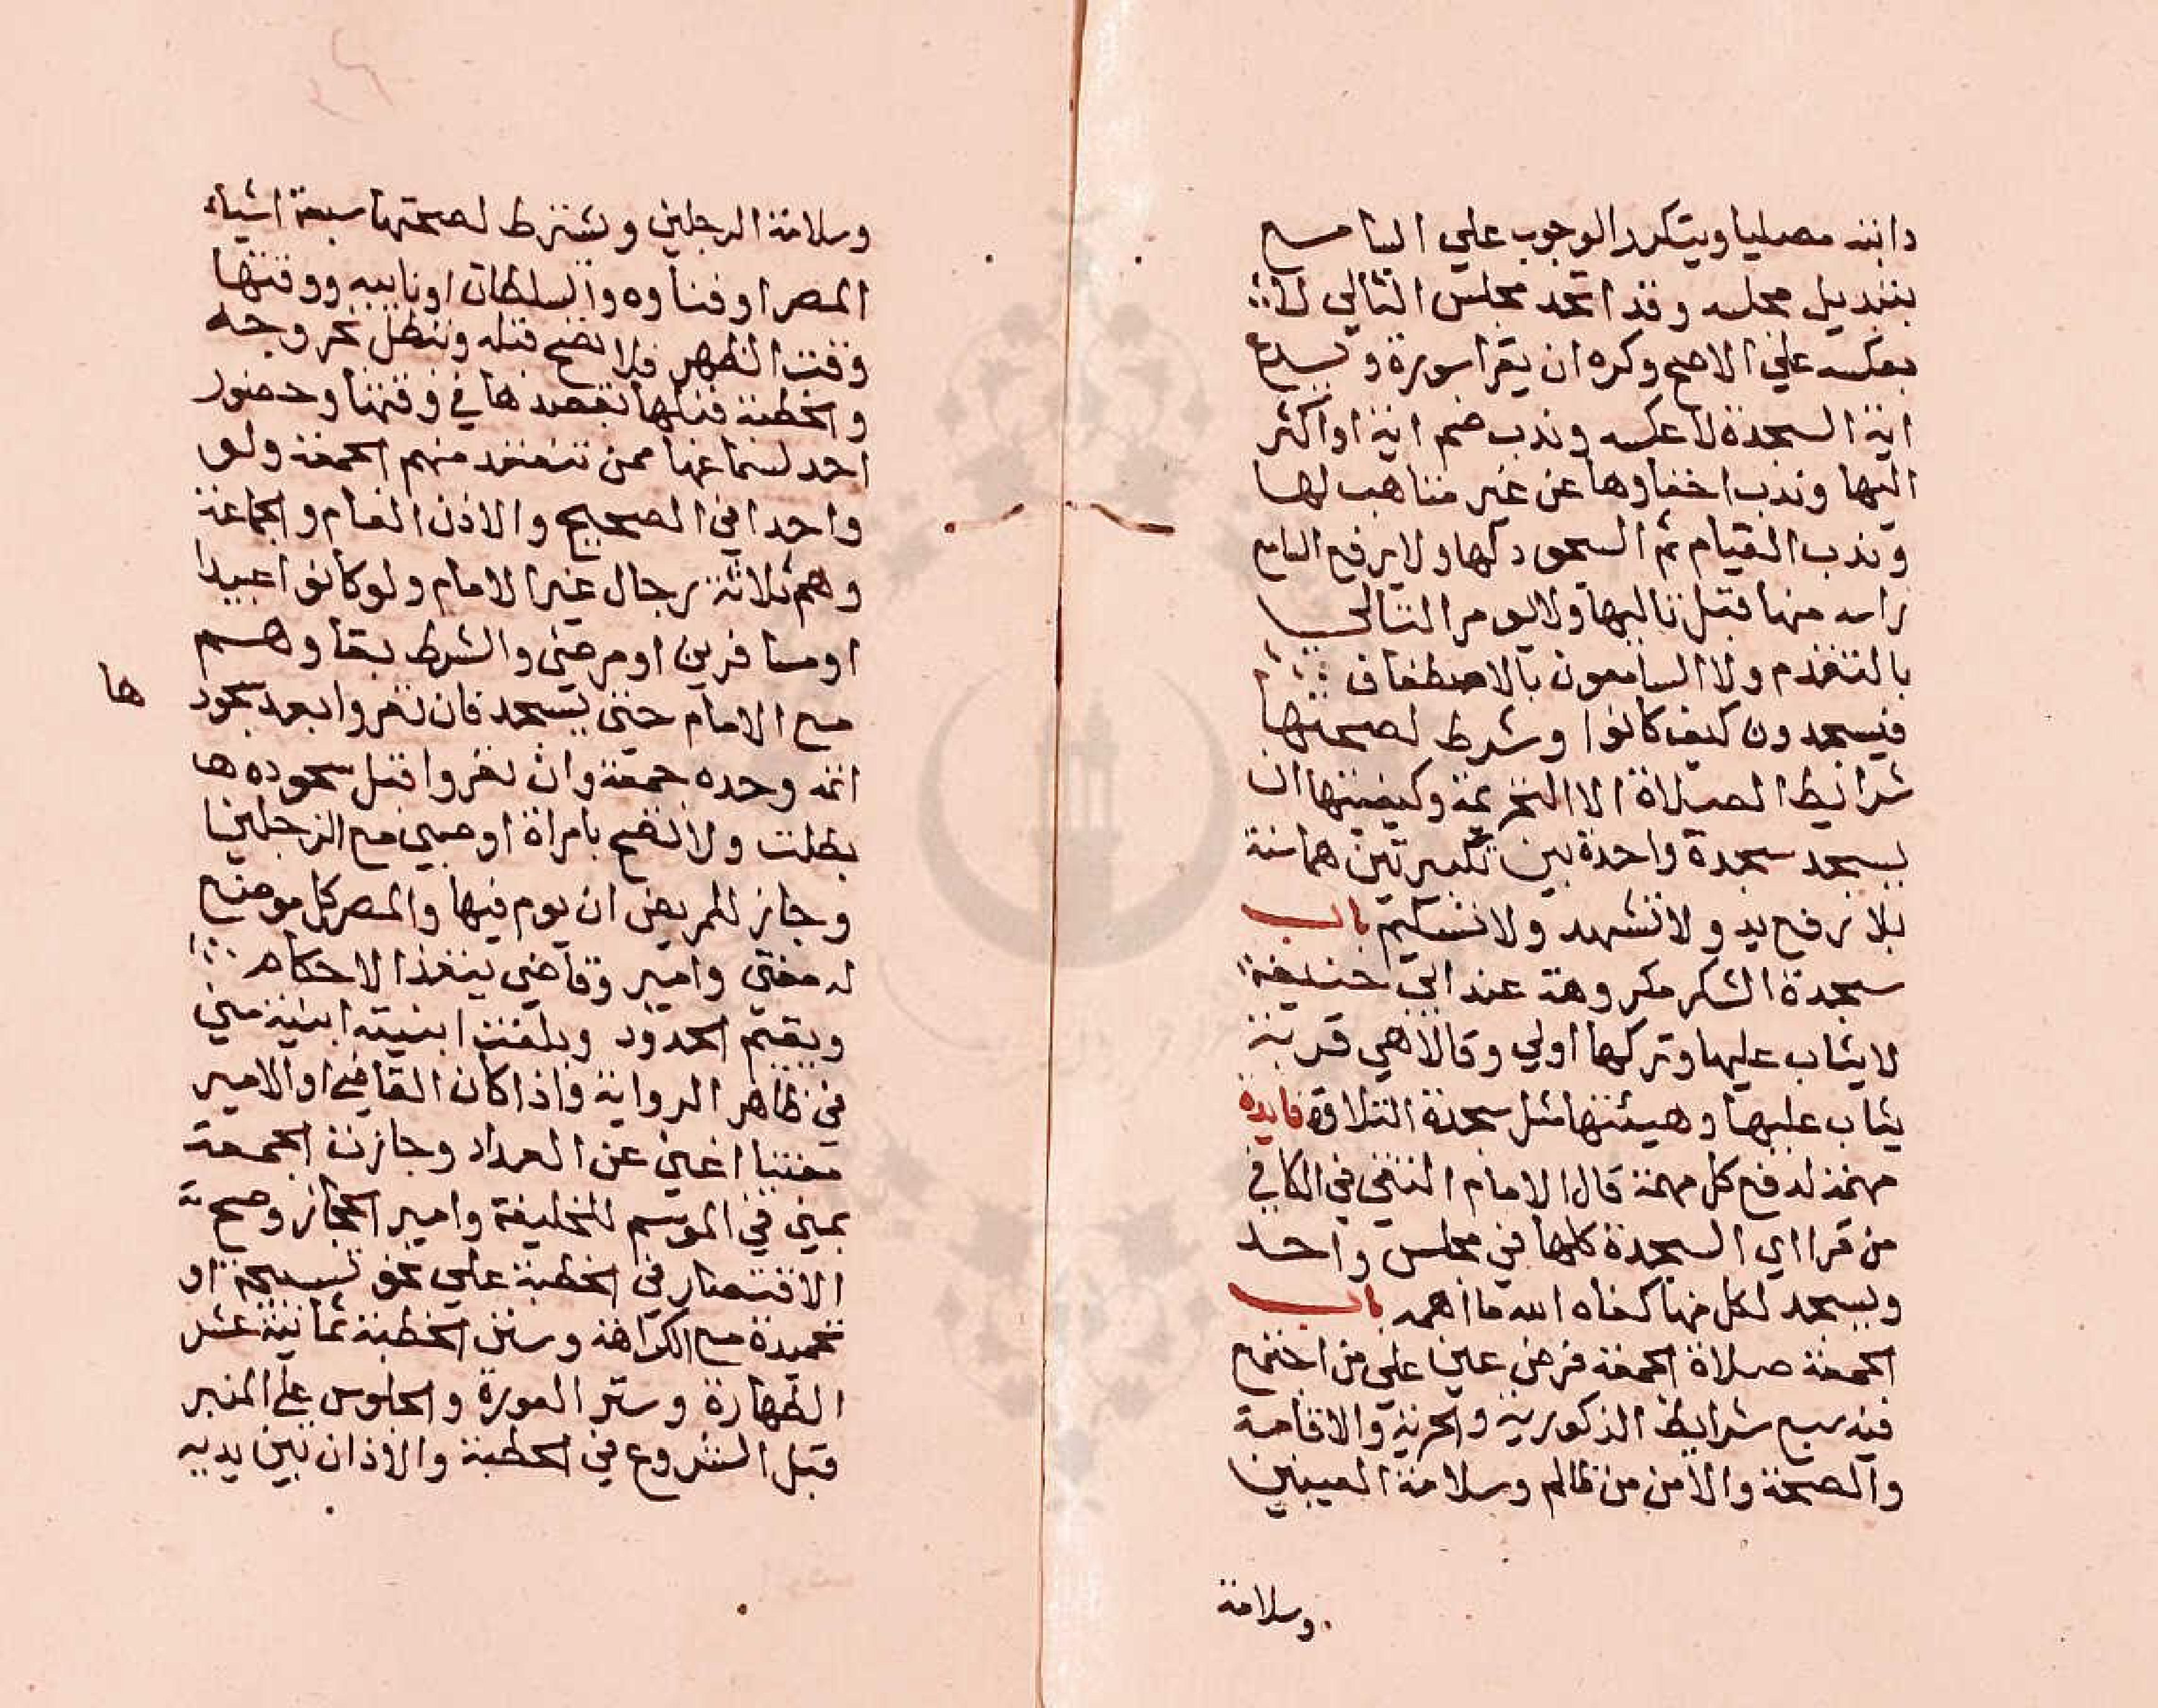 دابته مصليا ويتكرر الوجوب علي السامع
بتبديل مجلسه وقد اتحد مجلس التالي لا
بعكسه علي الاصح وكره ان يقرا سورة ويدع
اية السجدة لا عكسه وندب ضم اية او اكثر
اليها وندب اخفاوها عن غير متاهب لها
وندب القيام ثم السجود لها ولا يرفع السامع
راسه منها قبل تاليها ولا يومر التالي
بالتقدم ولا السامعون بالاصطفاف
فيسجدون كيف كانوا وشرط لصحتها
شرايط الصلاة الا التحريمة وكيفيتها ان
يسجد سجدة واحدة بين تكبيرتين هما سنة
بلا رفع يد ولا تشهد ولا تسليم باب
سجدة الشكر مكروهة عند ابي حنيفة
لا يثاب عليها وتركها اولي وقالا هي قربة
يثاب عليها وهيئتها مثل سجدة التلاوة فايدة
مهمة لدفع كل مهمة قال الامام النسفي في الكافي
من قرا اي السجدة كلها في مجلس واحد
وسجد لكل منها كفاه الله ما اهمه باب
الجمعة صلاة الجمعة فرض عين علي من اجتمع
فيه سبع شرايط الذكورية والحرية والاقامة
والصحة والامن من ظالم وسلامة العينين
وسلامة
وسلامة الرجلين ويشترط لصحتها سبعة اشياء
المصر او فناوه والسلطان او نايبه ووقتها
وقت الظهر فلا تصح قبله وتبطل بخروجه
والخطبة قبلها بقصدها في وقتها وحضور
احد لسماعها ممن تنعقد منهم الجمعة ولو
واحدا في الصحيح والاذن العام والجماعة
وهم ثلاثة رجال غير الامام ولو كانوا عبيدا
او مسافرين او مرضي والشرط بقاوهم
مع الامام حتي يسجد فان نفروا بعد سجود
ها
اتمه وحده جمعة وان نفروا قبل سجوده ها
بطلت ولا تصح بامراة او صبي مع الرجلين
وجاز للمريض ان يوم فيها والمصر كل موضع
له مفتي وامير وقاضي ينفذ الاحكام
ويقيم الحدود وبلغت ابنيته ابنية مني
في ظاهر الرواية واذا كان القاضي او الامير
مفتيا اغني عن العداد وجازت الجمعة
بمني في الموسم للخليفة وامير الحجاز وصح
الاقتصار في الخطبة علي نحو تسبيحة او
تحميدة مع الكراهة وسنن الخطبة ثمانية عشر
الطهارة وستر العورة والجلوس علي المنبر
قبل الشروع في الخطبة والاذان بين يديه